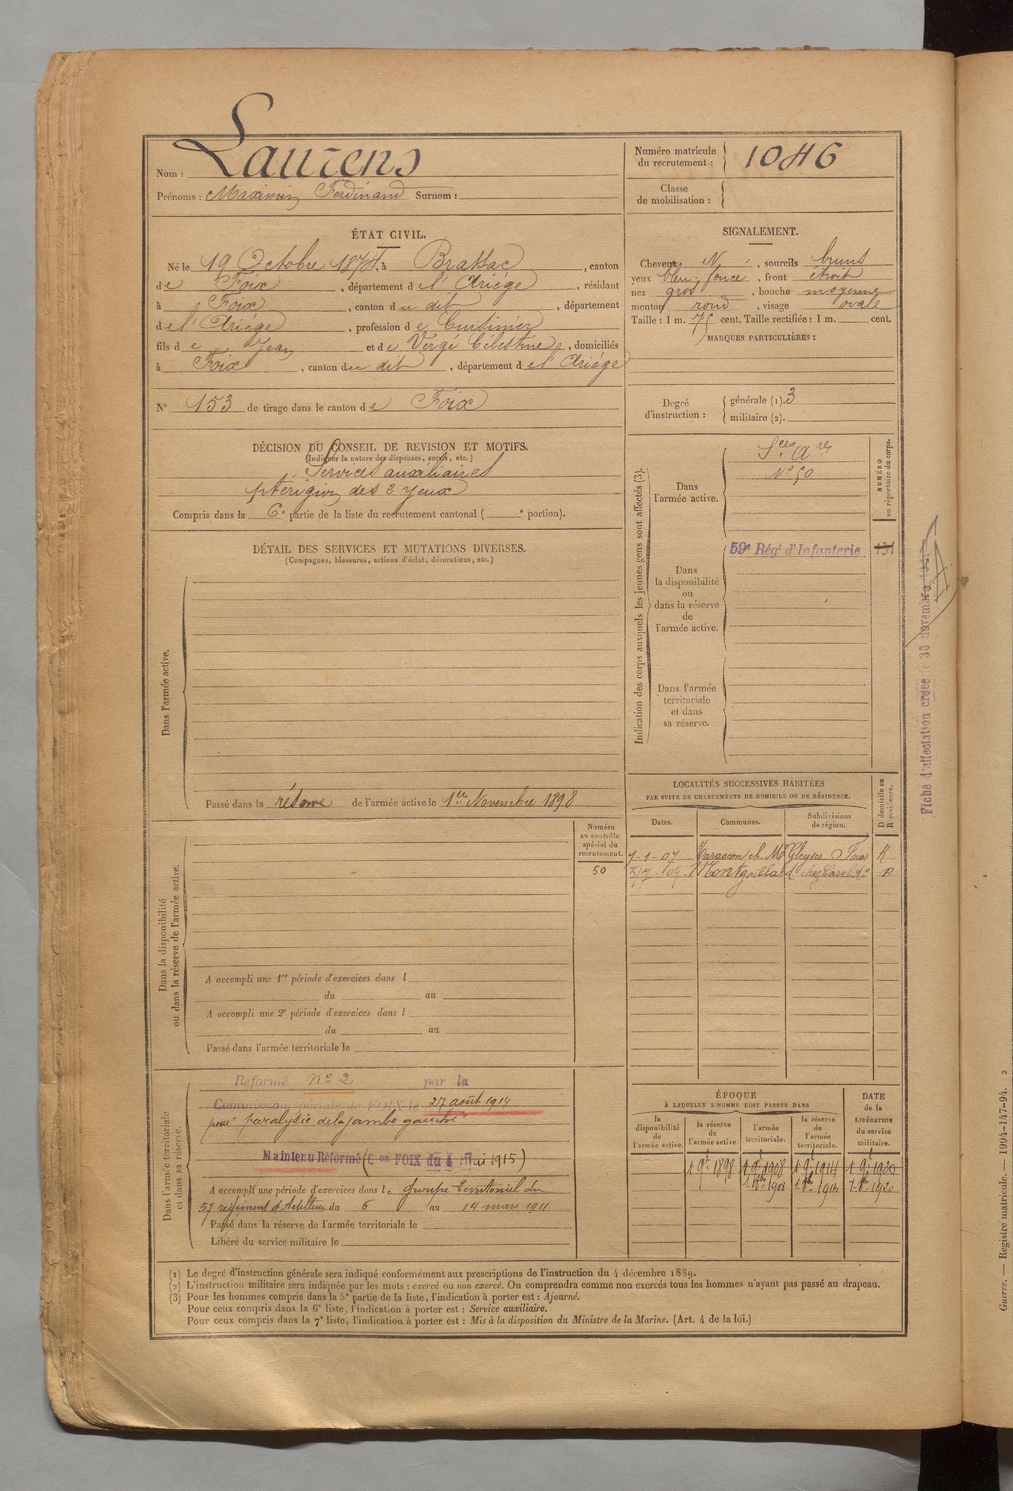 Nom : Laurens
Prénoms : Maximin Ferdinand Surnom :
Numéro matricule du recrutement : 1046
Classe de mobilisation :
ÉTAT CIVIL.
Né le 19 Octobre 1874, à Brassac, canton
de Foix, département de l'Ariège, résidant
à Foix, canton du dit, département
de l'Ariège, profession de Cuisinier
fils de Jean et de Vergé Célestine, domiciliés
à Foix, canton du dit, département de l'Ariège
N° 153 de tirage dans le canton de Foix
SIGNALEMENT.
Cheveux N, sourcils bruns
yeux bleu foncé, front étroit
nez gros, bouche moyenne
menton rond, visage ovale
Taille : 1 m. 75 cent. Taille rectifiée : 1 m. cent.
MARQUES PARTICULIÈRES :
Degré d'instruction : générale (1). 3
militaire (2).
DÉCISION DU CONSEIL DE REVISION ET MOTIFS.
(Indiquer la nature des dispenses, sursis, etc.)
Services auxiliaires
ptérigion des 2 yeux
Compris dans la 6e partie de la liste du recrutement cantonal ( e portion).
Indication des corps auxquels les jeunes gens sont affectés (3).
NUMÉRO au répertoire du corps.
Dans l'armée active.
Sces Ares
N° 50
Dans la disponibilité ou dans la réserve de l'armée active.
59e Régt d'Infanterie
Dans l'armée territoriale et dans sa réserve.
Fiche d'affectation créée le 30 novembre
DÉTAIL DES SERVICES ET MUTATIONS DIVERSES.
(Campagnes, blessures, actions d'éclat, décorations, etc.)
Dans l'armée active.
Passé dans la réserve de l'armée active le 1er Novembre 1898
Numéro au contrôle spécial du recrutement.
50
Dans la disponibilité ou dans la réserve de l'armée active.
A accompli une 1re période d'exercices dans l
du au
A accompli une 2e période d'exercices dans l
du au
Passé dans l'armée territoriale le
LOCALITÉS SUCCESSIVES HABITÉES
PAR SUITE DE CHANGEMENTS DE DOMICILE OU DE RÉSIDENCE.
Dates. Communes. Subdivisions de région. D domicile ou R résidence.
7-1-07 Tarascon ch. Mr Gleyzes Foix R
Montgaillard R
Dans l'armée territoriale et dans sa réserve.
Réformé n° 2 par la
Commission spéciale de FOIX le 27 août 1914
pour paralysie de la jambe gauche
Maintenu Réformé (Con FOIX du 4 Mai 1915)
A accompli une période d'exercices dans le Groupe territorial du
57 régiment d'Artillerie du 6 au 14 mars 1911
Passé dans la réserve de l'armée territoriale le
Libéré du service militaire le
ÉPOQUE
À LAQUELLE L'HOMME DOIT PASSER DANS
la disponibilité de l'armée active. la réserve de l'armée active. l'armée territoriale. la réserve de l'armée territoriale. DATE de la LIBÉRATION du service militaire.
1 9e 1898 1 9e 1908 1 9e 1914 1 9e 1920
(1) Le degré d'instruction générale sera indiqué conformément aux prescriptions de l'instruction du 4 décembre 1889.
(2) L'instruction militaire sera indiquée par les mots : exercé ou non exercé. On comprendra comme non exercés tous les hommes n'ayant pas passé au drapeau.
(3) Pour les hommes compris dans la 5e partie de la liste, l'indication à porter est : Ajourné.
Pour ceux compris dans la 6e liste, l'indication à porter est : Service auxiliaire.
Pour ceux compris dans la 7e liste, l'indication à porter est : Mis à la disposition du Ministre de la Marine. (Art. 4 de la loi.)
Guerre. — Registre matricule. — 1994-147-94. 2